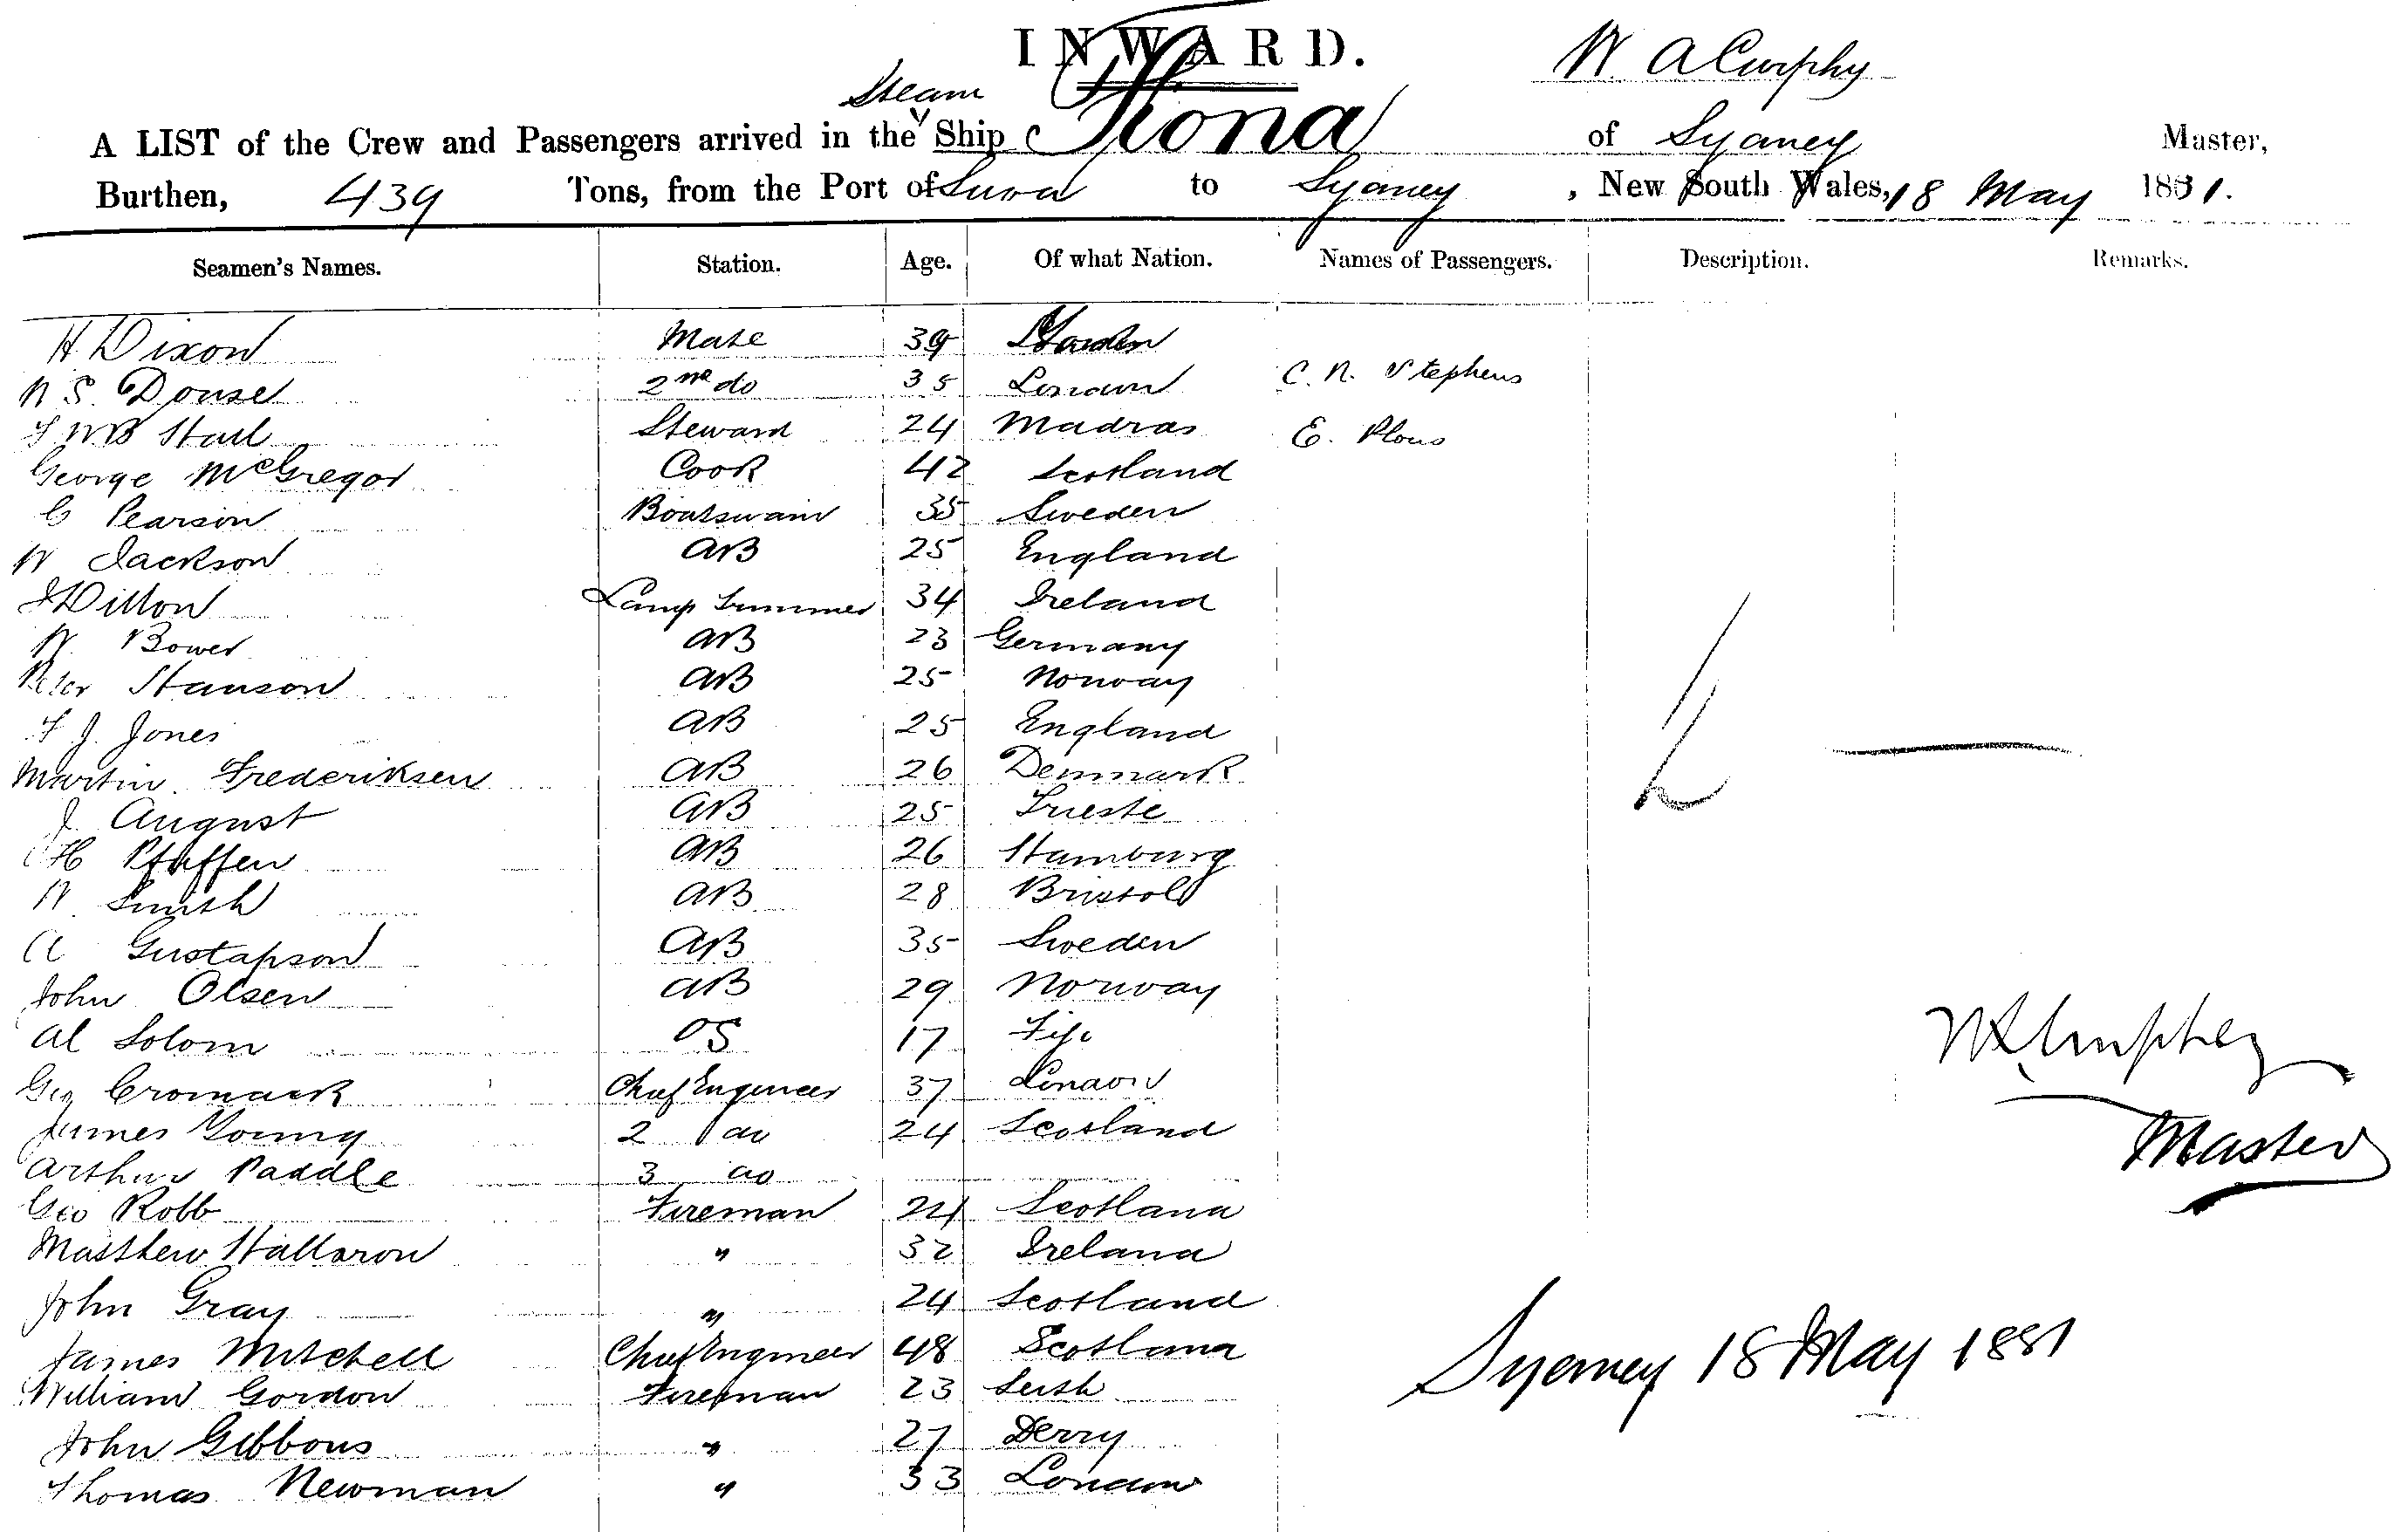 INWARD.
W A Curphy
A LIST of the Crew and Passengers arrived in the Steam Ship Fiona of Sydney Master,
Burthen, 439 Tons, from the Port of Suva to Sydney, New South Wales, 18 May 1881.
Seamen's Names. Station. Age. Of what Nation. Names of Passengers. Description. Remarks.
H Dixon Mate 39
W S. Douse 2nd do 35 London C. N. Stephens
F W B Hall Steward 24 Madras E. Plous
George McGregor Cook 42 Scotland
C Pearson Boatswain 35 Sweden
W Jackson AB 25 England
J Dillon Lamp Trimmer 34 Ireland
W. Bower AB 23 Germany
Peter Hanson AB 25 Norway
F J. Jones AB 25 England
Martin Frederiksen AB 26 Denmark
J August AB 25 Trieste
H Pfaffen AB 26 Hamburg
W Smith AB 28 Bristol
A Gustafson AB 35 Sweden
John Olsen AB 29 Norway
Al Solom OS 17 Fiji
Geo Cromack Chief Engineer 37 London
James Young 2 do 24 Scotland
Arthur Paddle 3 do
Geo Robb Fireman 24 Scotland
Matthew Hallaron " 32 Ireland
John Gray " 24 Scotland
James Mitchell Chief Engineer 48 Scotland
William Gordon Fireman 23 Leith
John Gibbons " 27 Derry
Thomas Newman " 33 London
W A Curphey
Master
Sydney 18 May 1881